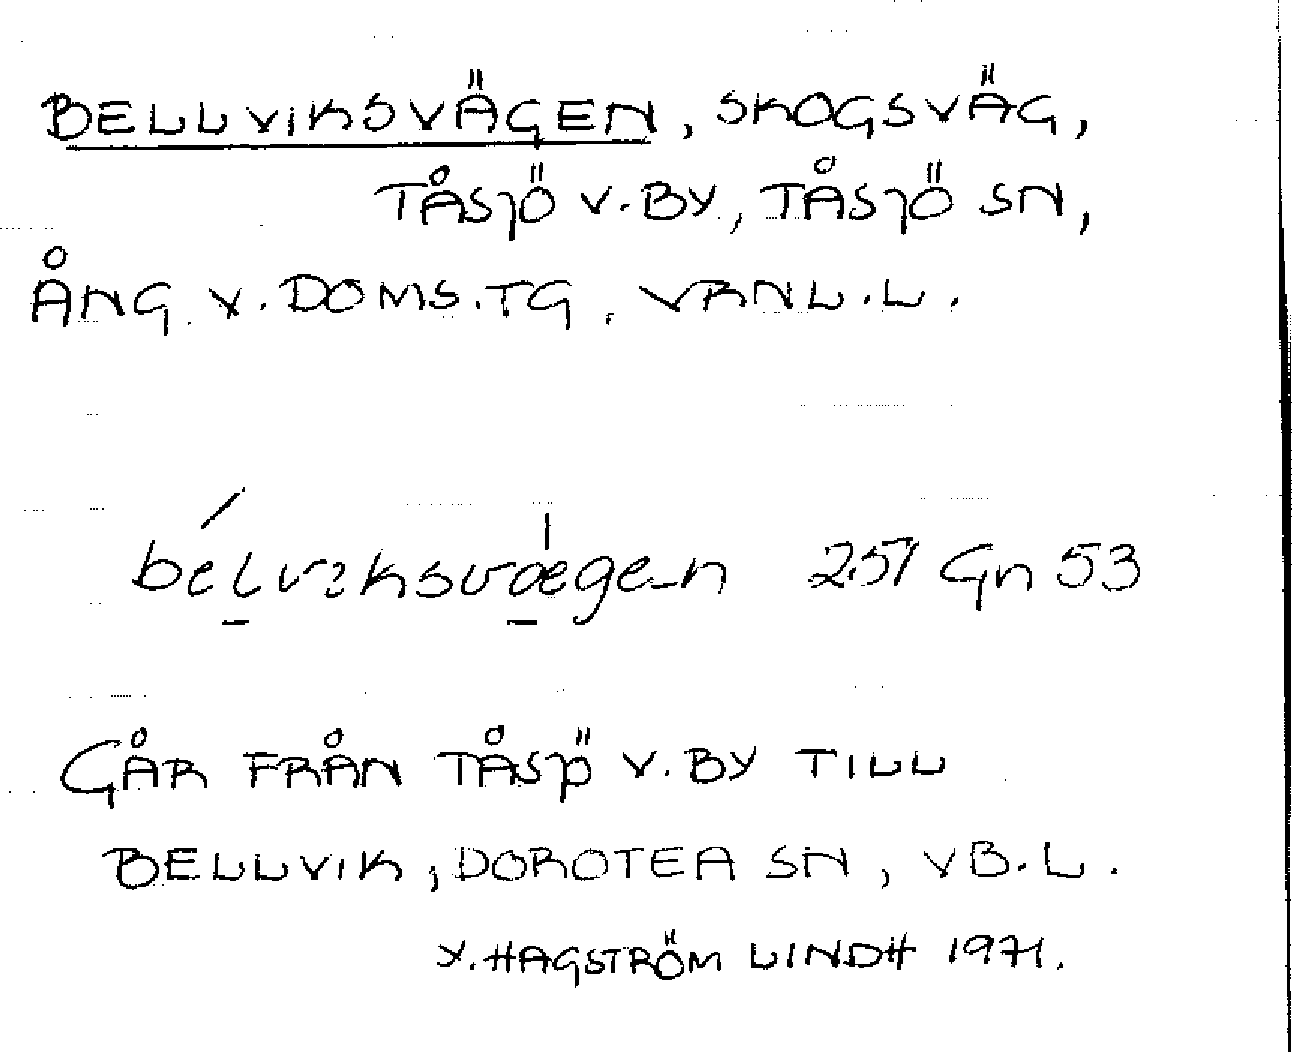 BELLVIKSVÄGEN, SKOGSVÄG,
TÅSJÖ V. BY, TÅSJÖ SN,
ÅNG. V. DOMS. TG, VRNL. L.
bélviksvægen 257 Gn 53
GÅR FRÅN TÅSJÖ V. BY TILL
BELLVIK, DOROTEA SN, VB. L.
Y. HAGSTRÖM LINDH 1971.